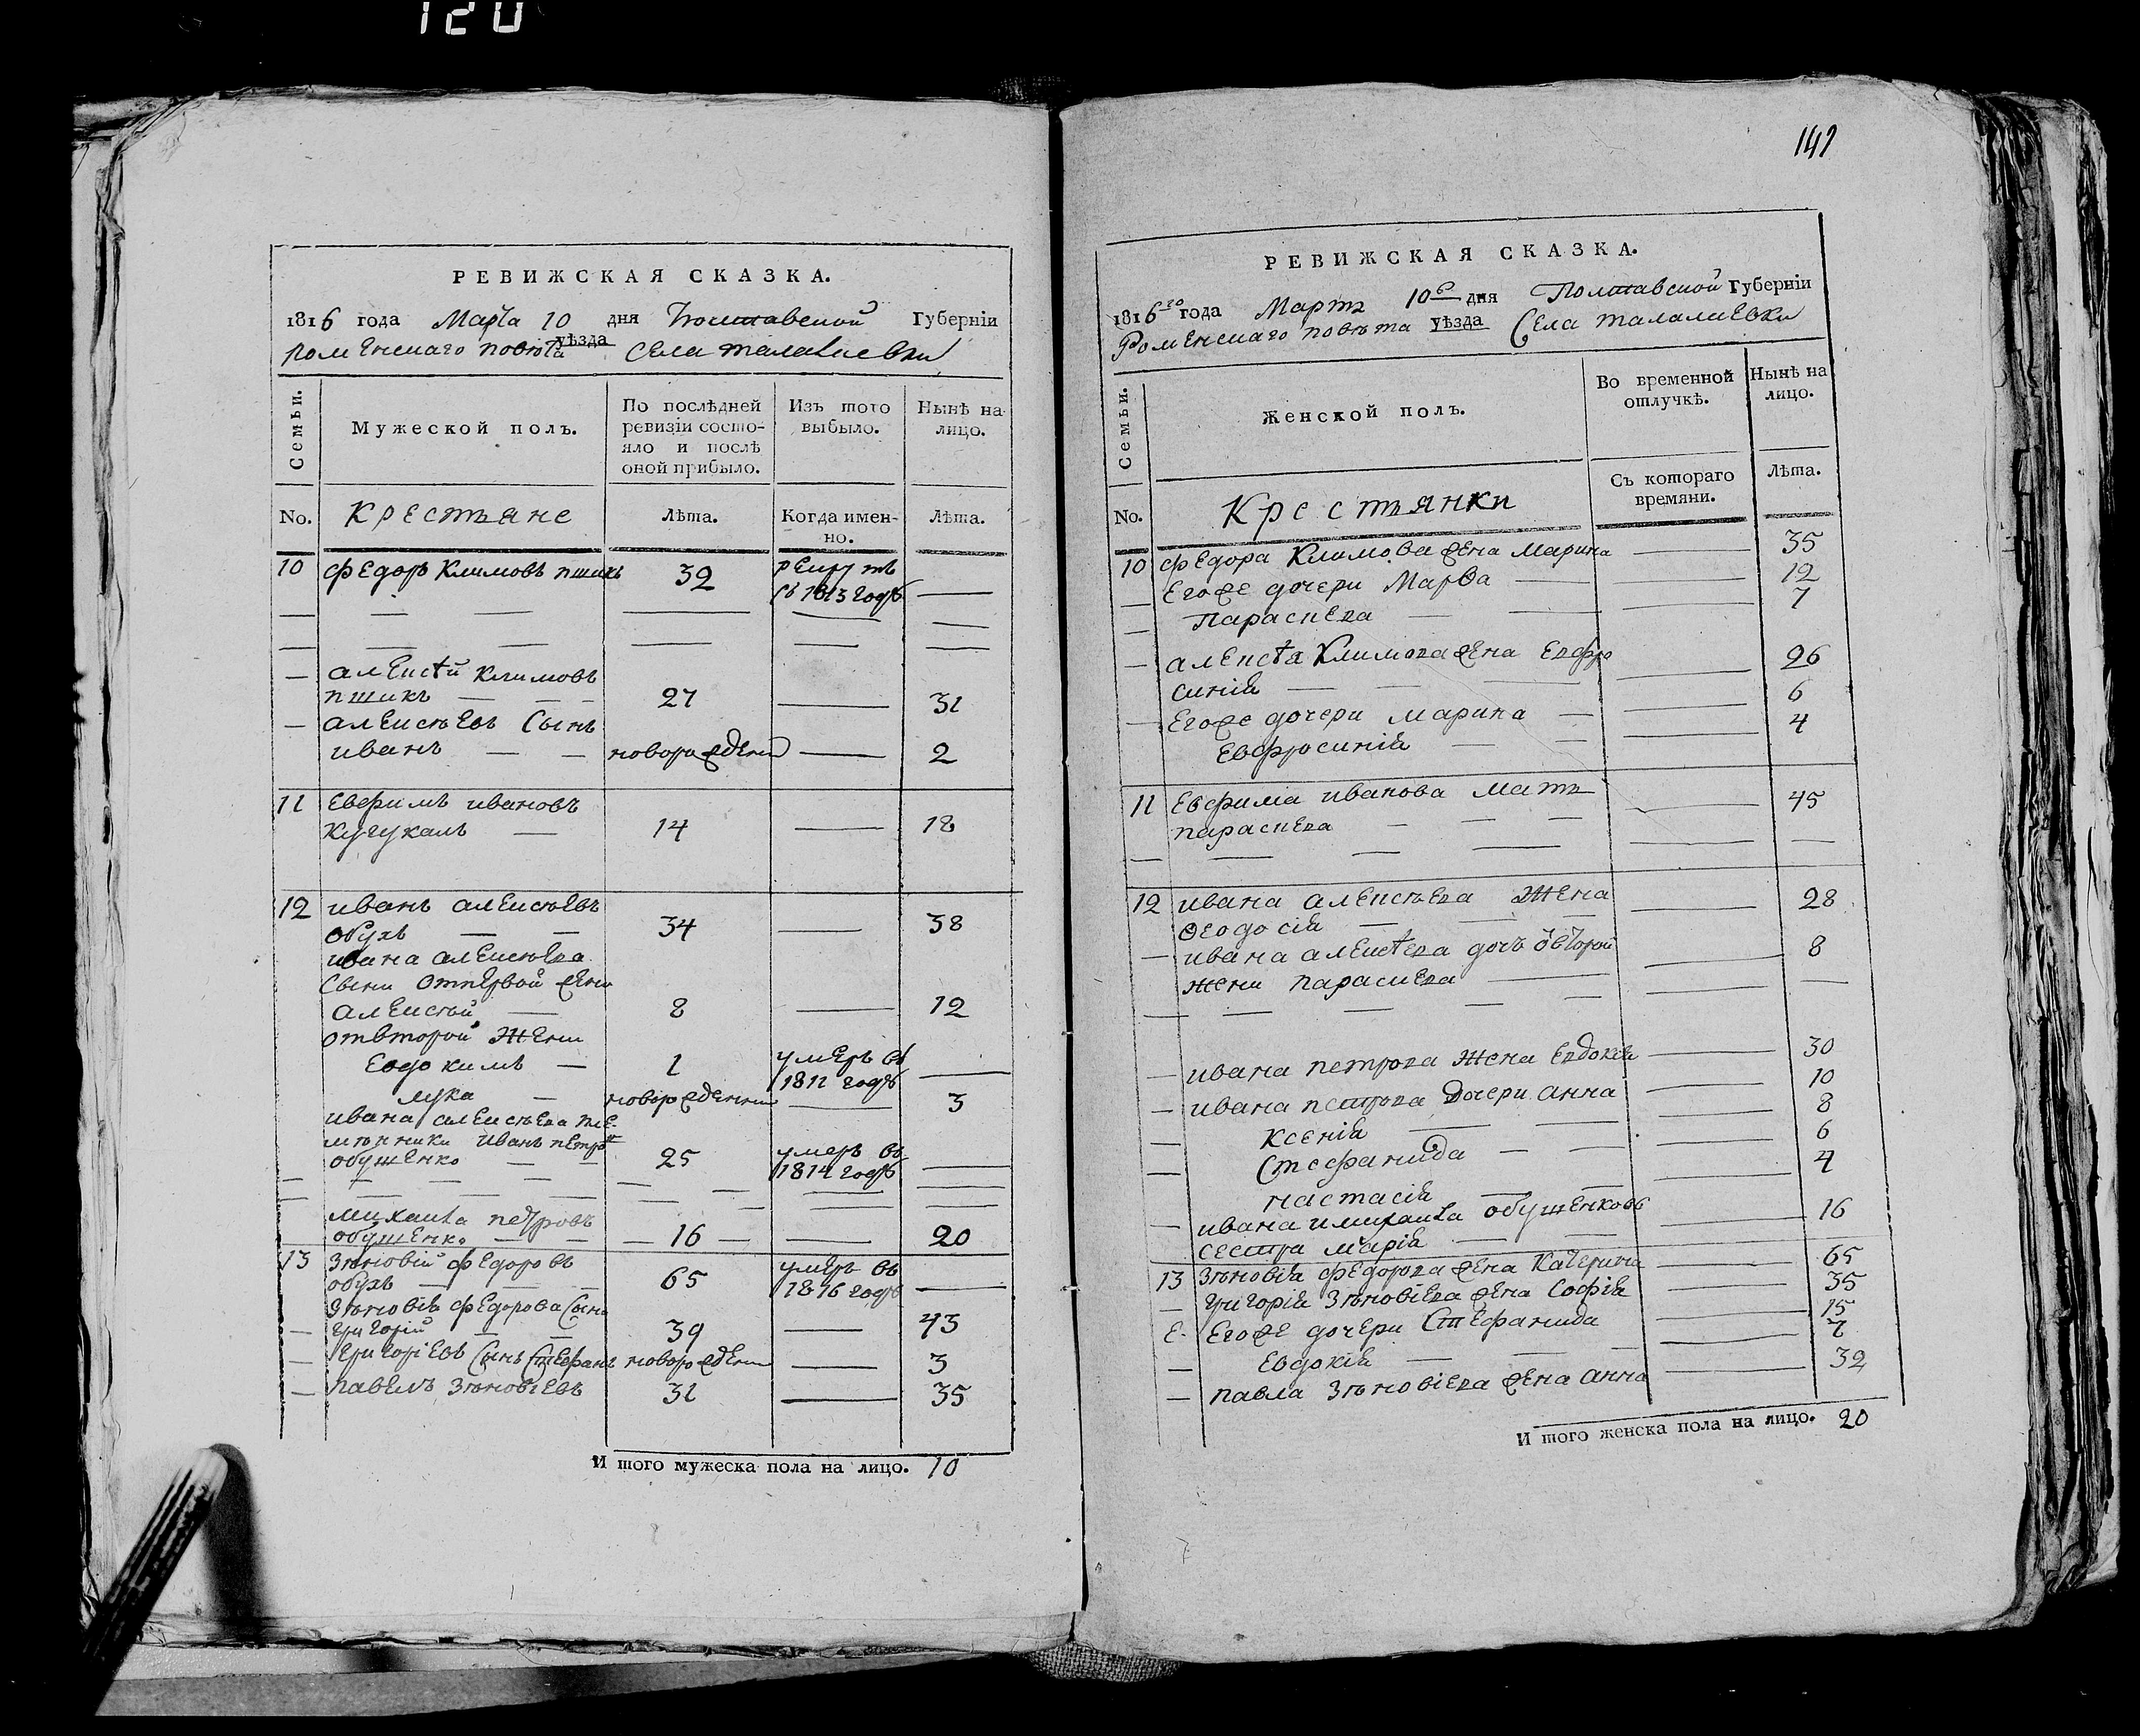 120
РЕВИЖСКАЯ СКАЗКА.
1816 года Марта 10 дня Полтавской Губерніи
роменскаго повѣта уѣзда Села талалаевки
Семьи. Мужеской полъ. По послѣдней ревизіи состояло и послѣ оной прибыло. Изъ того выбыло. Нынѣ на лицо.
No. Крестьяне Лѣта. Когда именно. Лѣта.
10 Федоръ Климовъ пшикъ 32 рекрутъ
въ 1813 годѣ —
— алексѣй климовъ
пшикъ — 27 — 31
— алексѣевъ Сынъ
иванъ — — новорожденъ — 2
11 Евфимъ ивановъ
— 14 — 18
12 иванъ алексѣевъ
обухъ — — 34 — 38
ивана алексѣева
Сыни отпервой жени
алексѣй — 8 — 12
отвторой жени
Евдокимъ — 1 умеръ въ
1812 годѣ —
лука — новорожденни — 3
ивана алексѣева пле
мѣнники иванъ петровъ
обушенко — — 25 умеръ въ
1814 годѣ —
михаила петровъ
обушенко — — 16 — — 20
13 Зѣновій федоровъ
обухъ — 65 умеръ въ
1816 годѣ —
Зѣновія федорова Сынъ
— григорій — — 39 — 43
— григоріевъ Сынъ Стефанъ новорожденъ — 3
— павелъ Зѣновіевъ 31 — 35
И того мужеска пола на лицо. 10
141
РЕВИЖСКАЯ СКАЗКА.
1816го года Мартъ 10о дня Полтавской Губерніи
Роменскаго повѣта уѣзда Села талалаевки
Семьи. Женской полъ. Во временной отлучкѣ. Нынѣ на лицо.
Съ котораго времяни. Лѣта.
No. Крестьянки
10 федора Климова жена марина — 35
— Егоже дочери Марѳа — — 12
— Параскева — — — 7
— алексѣя Климова жена Евфро
синія — — — — 26
— Егоже дочери марина — — 6
Евфросинія — — — 4
11 Евфима иванова мать — 45
параскева — — —
12 ивана алексѣева жена — 28
ѳеодосія — — —
— ивана алексѣева дочъ отвторой — 8
жени параскева —
— ивана петрова жена Евдокія — 30
— ивана петрова дочери анна — 10
— Ксенія — — — 8
— Стефанида — — 6
настасія — — 4
— ивана имихаила обушенковъ — 16
сестра марія — —
13 Зѣновія федорова жена Катерина — 65
— григорія Зѣновіева жена Софія — 35
Е. Егоже дочери Стефанида — 15
— Евдокія — — —
— павла Зѣновіева жена анна — 32
И того женска пола на лицо. 20